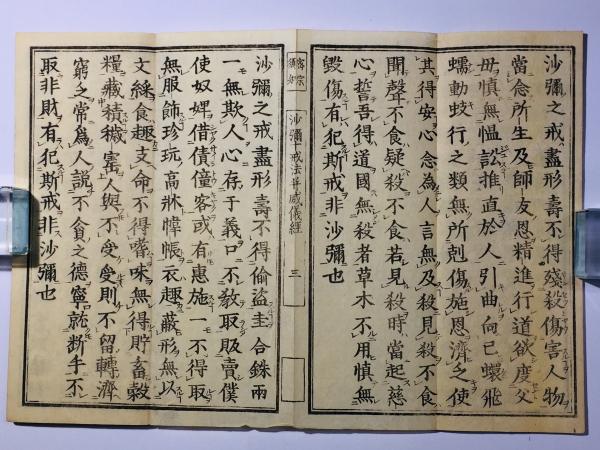 沙彌之戒盡形壽不得殘殺傷害人物
當念所生及師友恩精進行道欲度父
毋慎無慍訟推直於人引曲向己蠉飛
蠕動蚑行之類無所剋傷施恩濟乏使
其得安心念為人言無及殺見殺不食
聞聲不食疑殺不食若見殺時當起慈
心誓吾得道國無殺者草木不用慎無
毀傷有犯斯戒非沙彌也
沙彌十戒法并威儀經
三
沙彌之戒盡形壽不得偷盜圭合銖兩
一無欺人心存于義口不教取販賣僕
使奴婢借債僮客或有惠施一不得取
無服飾珍玩高牀幃帳衣趣蔽形無以
文綵食趣支命不得嗜味無得貯畜穀
糧藏積穢害人與不受受則不留轉濟
窮乏常為人說不貪之德寧就斷手不
取非財有犯斯戒非沙彌也